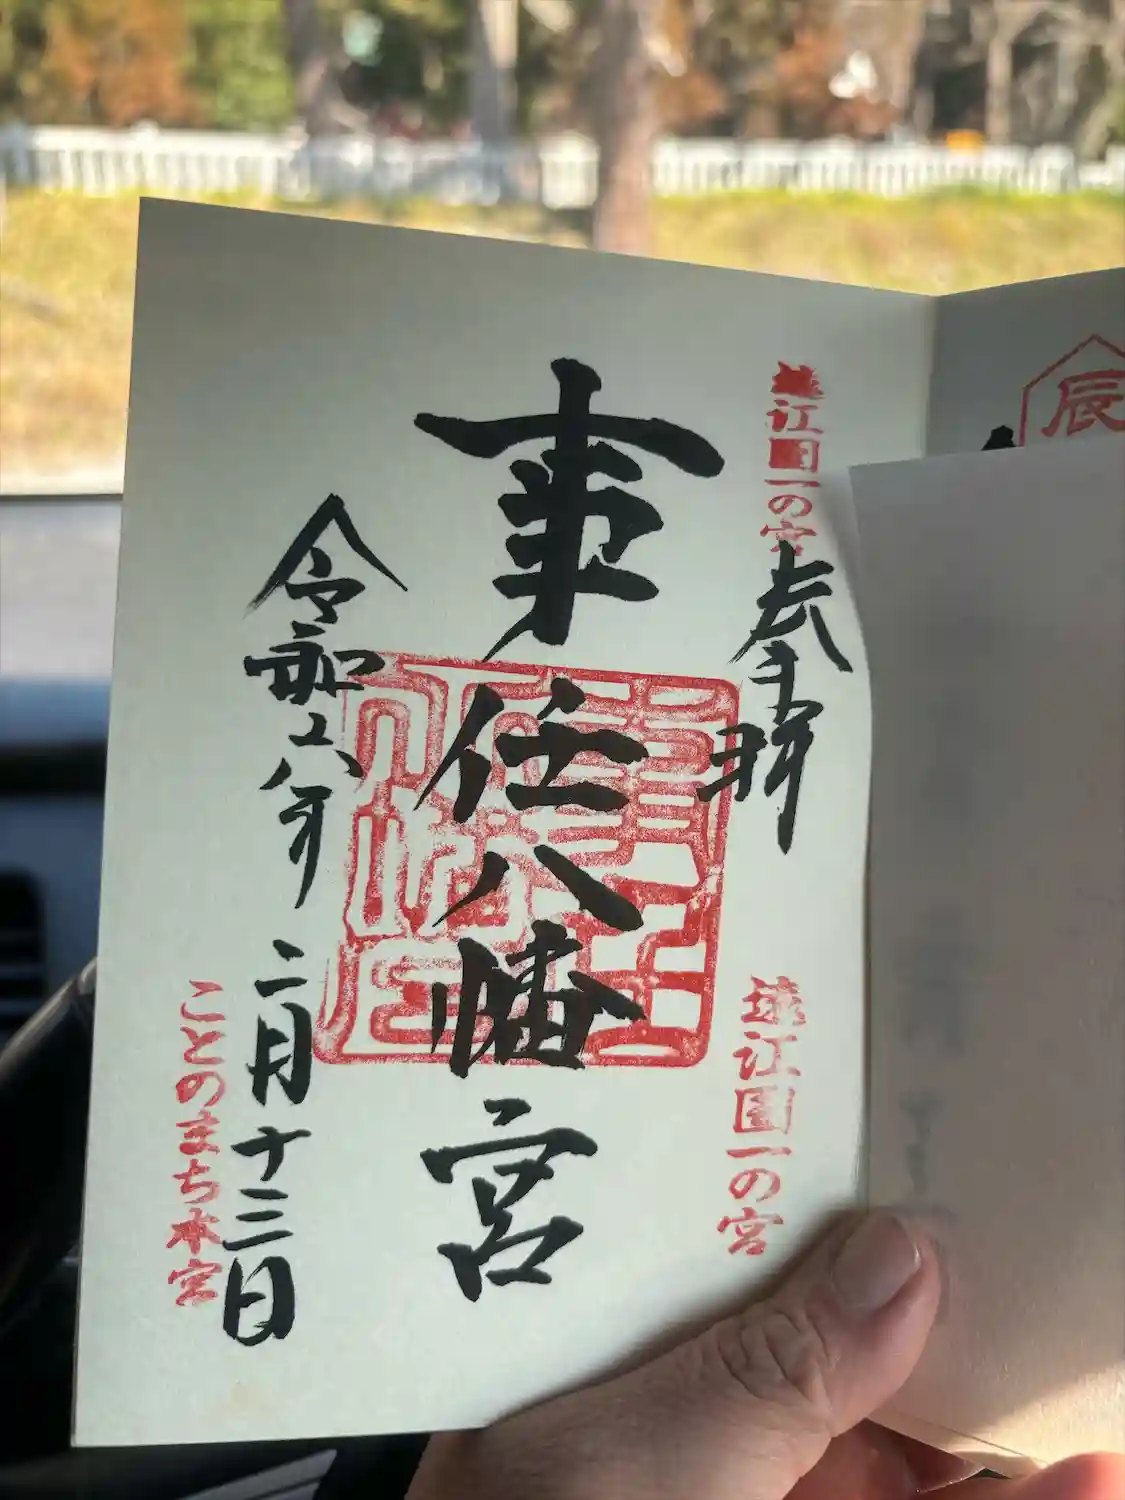 辰
遠江国一の宮
奉拝
遠江国一の宮
事任八幡宮
令和六年二月十三日
ことのまち本宮